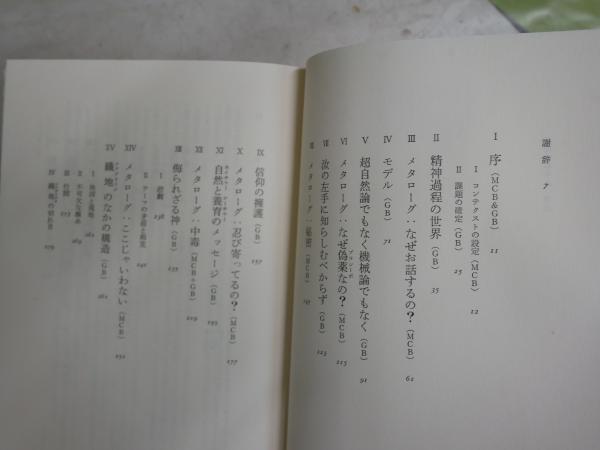 謝辞 7
I 序（MCB&GB） 11
I コンテクストの設定（MCB） 12
II 課題の確定（GB） 25
II 精神過程の世界（GB） 35
III メタローグ：なぜお話するの？（MCB） 61
IV モデル（GB） 71
V 超自然論でもなく機械論でもなく（GB） 91
VI メタローグ：なぜ偽薬なの？（MCB） 115
VII 汝の左手に知らしむべからず（GB） 123
VIII メタローグ：秘密（MCB）
IX 信仰の擁護（GB） 157
X メタローグ：忍び寄ってるの？（MCB） 177
XI 自然と養育のメッセージ（GB） 195
XII メタローグ：中毒（MCB+GB） 219
XIII 侮られざる神（GB） 235
I 悲劇 238
II テーマの矛盾と 240
XIV メタローグ：ここじゃいわない（MCB） 252
XV 織地のなかの構造（GB） 261
I 地図と現地 261
II 不可欠な 262
III 273
IV 織地の切れ目 279